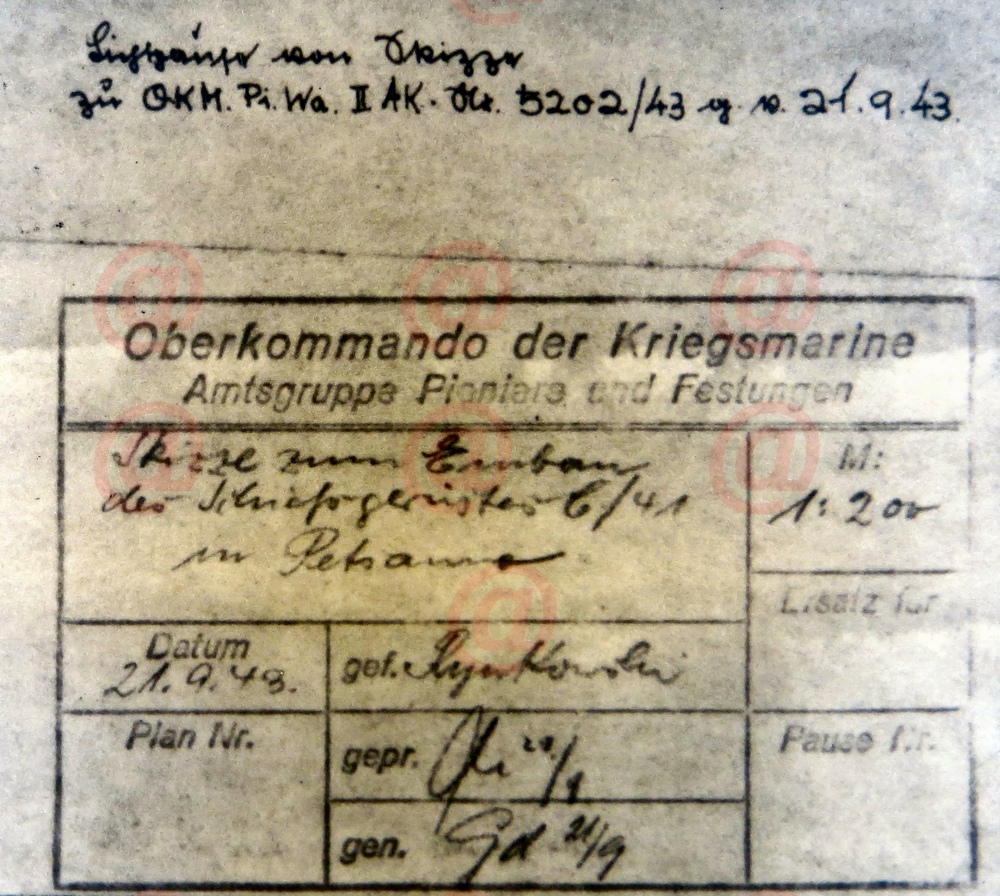 Lichtpause von Skizze
zu OKM. Pi. Wa. II AK. Nr. 5202/43 g v. 21.9.43.
Oberkommando der Kriegsmarine
Amtsgruppe Pioniere und Festungen
Skizze zum Einbau
des Schießgerüstes C/41
in Petsamo
M:
1:200
Ersatz für
Datum
21.9.43.
gef.
Plan Nr.
gepr.
Pause Nr.
gen. Gd 21/9